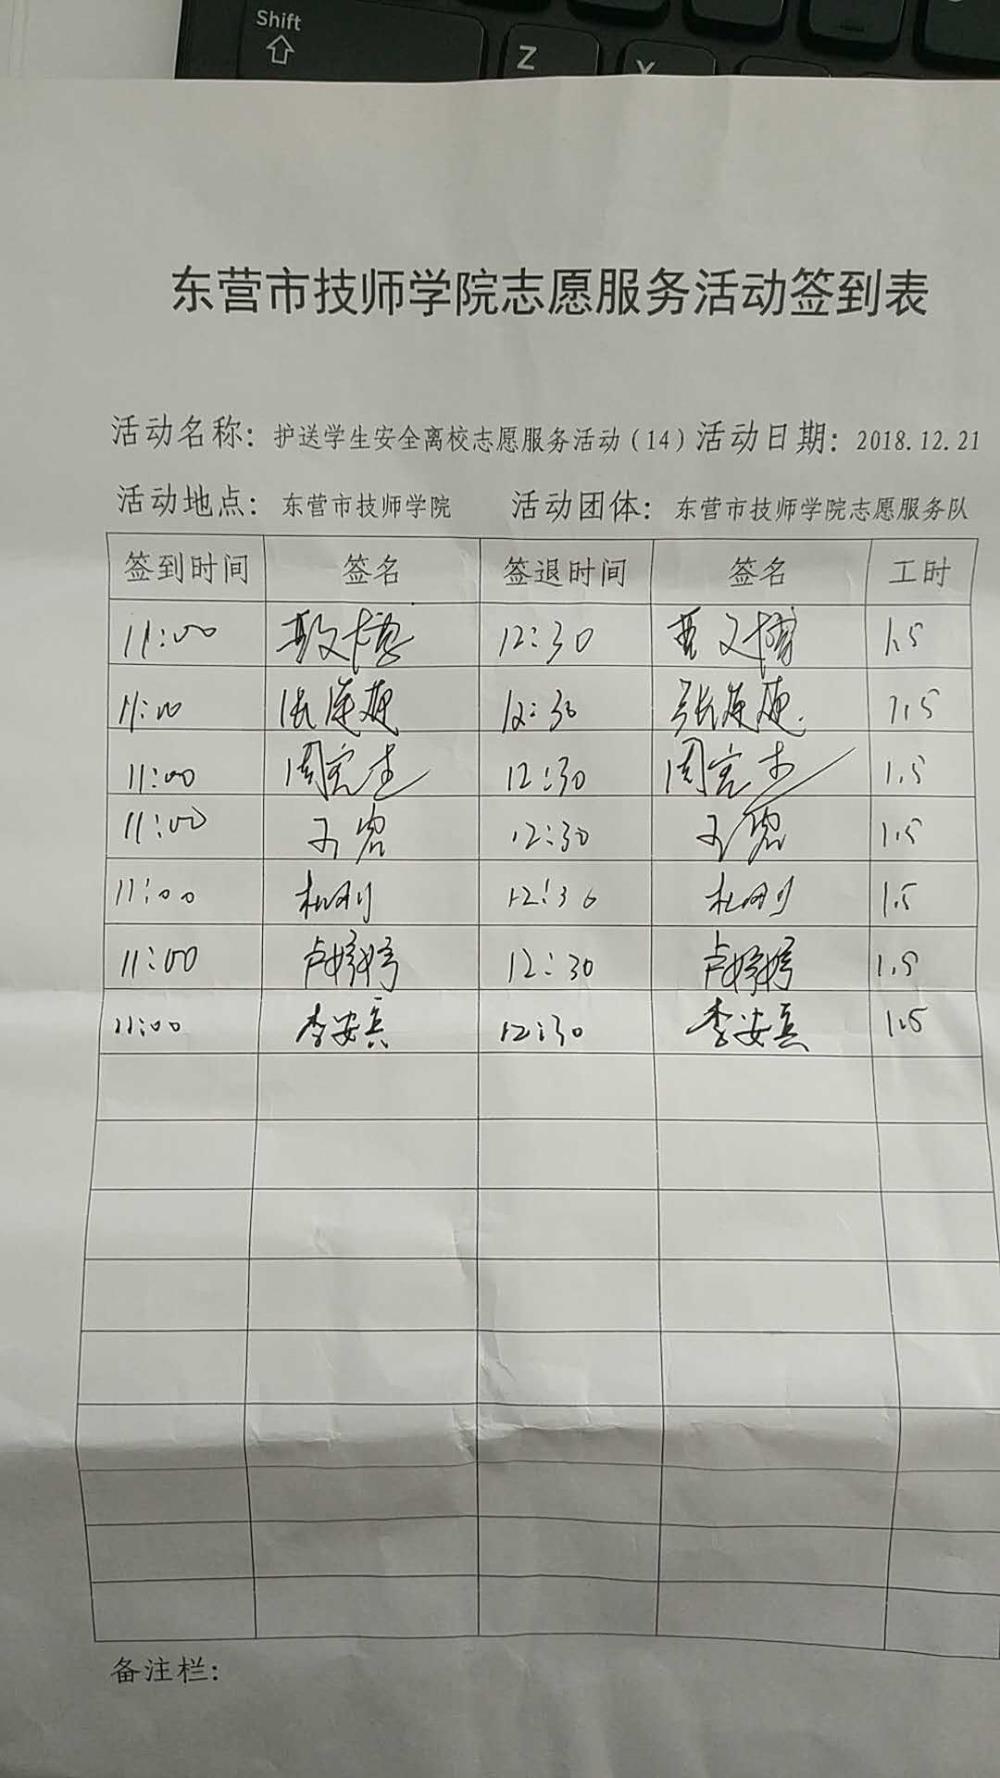 Shift
Z
东营市技师学院志愿服务活动签到表
活动名称：护送学生安全离校志愿服务活动（14）活动日期：2018.12.21
活动地点：东营市技师学院 活动团体：东营市技师学院志愿服务队
签到时间 签名 签退时间 签名 工时
11:00 12:30 1.5
11:00 12:30 1.5
11:00 12:30 1.5
11:00 12:30 1.5
11:00 杜刚 12:30 杜刚 1.5
11:00 卢婷婷 12:30 卢婷婷 1.5
11:00 李安兵 12:30 李安兵 1.5
备注栏：